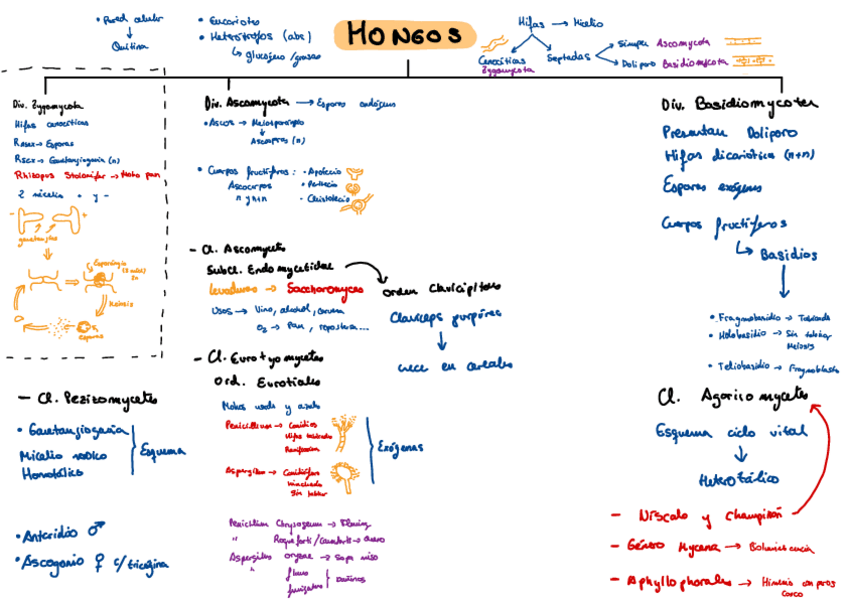 • Pared celular
↓
Quitina
• Eucariotas
• Heterótrofos (abs)
↳ glucógeno/grasas
HONGOS
Hifas → Micelio
Cenocíticas
Zygomycota
Septadas
Simple Ascomycota
Doliporo Basidiomycota
Div. Zygomycota
Hifas cenocíticas
Rasex → Esporas
Rsex → Gametangiogamia (n)
Rhizopus Stolonifer → Moho pan
2 micelios + y -
- +
gametangios
Esporangio
2n
meiosis
esporas
Div. Ascomycota → Esporas endógenas
• Ascos → Meiosporangio
↓
Ascosporas (n)
• Cuerpos fructíferos: - Apotecio
Ascocarpos - Peritecio
n y n+n - Cleistotecio
- Cl. Ascomycetes
Subcl. Endomycetidae
Levaduras → Saccharomyces
Usos → Vino, alcohol, cerveza
O₂ → Pan, repostería...
Orden Clavicipitales
Claviceps purpúrea
↓
crece en cereales
- Cl. Eurotyomycetes
Ord. Eurotiales
Mohos verdes y azules
Penicillium → Conidios
Hifas tabicadas
Ramificación
Aspergillus → Conidióforo
hinchado
Sin tabicar
Exógenas
Penicillium Chrysogenum → Fleming
" Roqueforti/Camemberti → queso
Aspergillus oryzae → Sopa miso
" flavus
fumigatus
Dañinos
- Cl. Pezizomycetes
• Gametangiogamia
Micelio
Homotálico
Esquema
• Anteridio ♂
• Ascogonio ♀ c/ tricógina
Div. Basidiomycota
Presentan Doliporo
Hifas dicarióticas (n+n)
Esporas exógenas
Cuerpos fructíferos
↳ Basidios
• Fragmobasidio → Tabicado
• Holobasidio → Sin tabicar
Meiosis
• Teliobasidio → Fragmoblasto
Cl. Agaricomycetes
Esquema ciclo vital
↓
Heterotálico
- Níscalo y Champiñón
- Género Mycena →
- Aphyllophorales → Himenio con poros